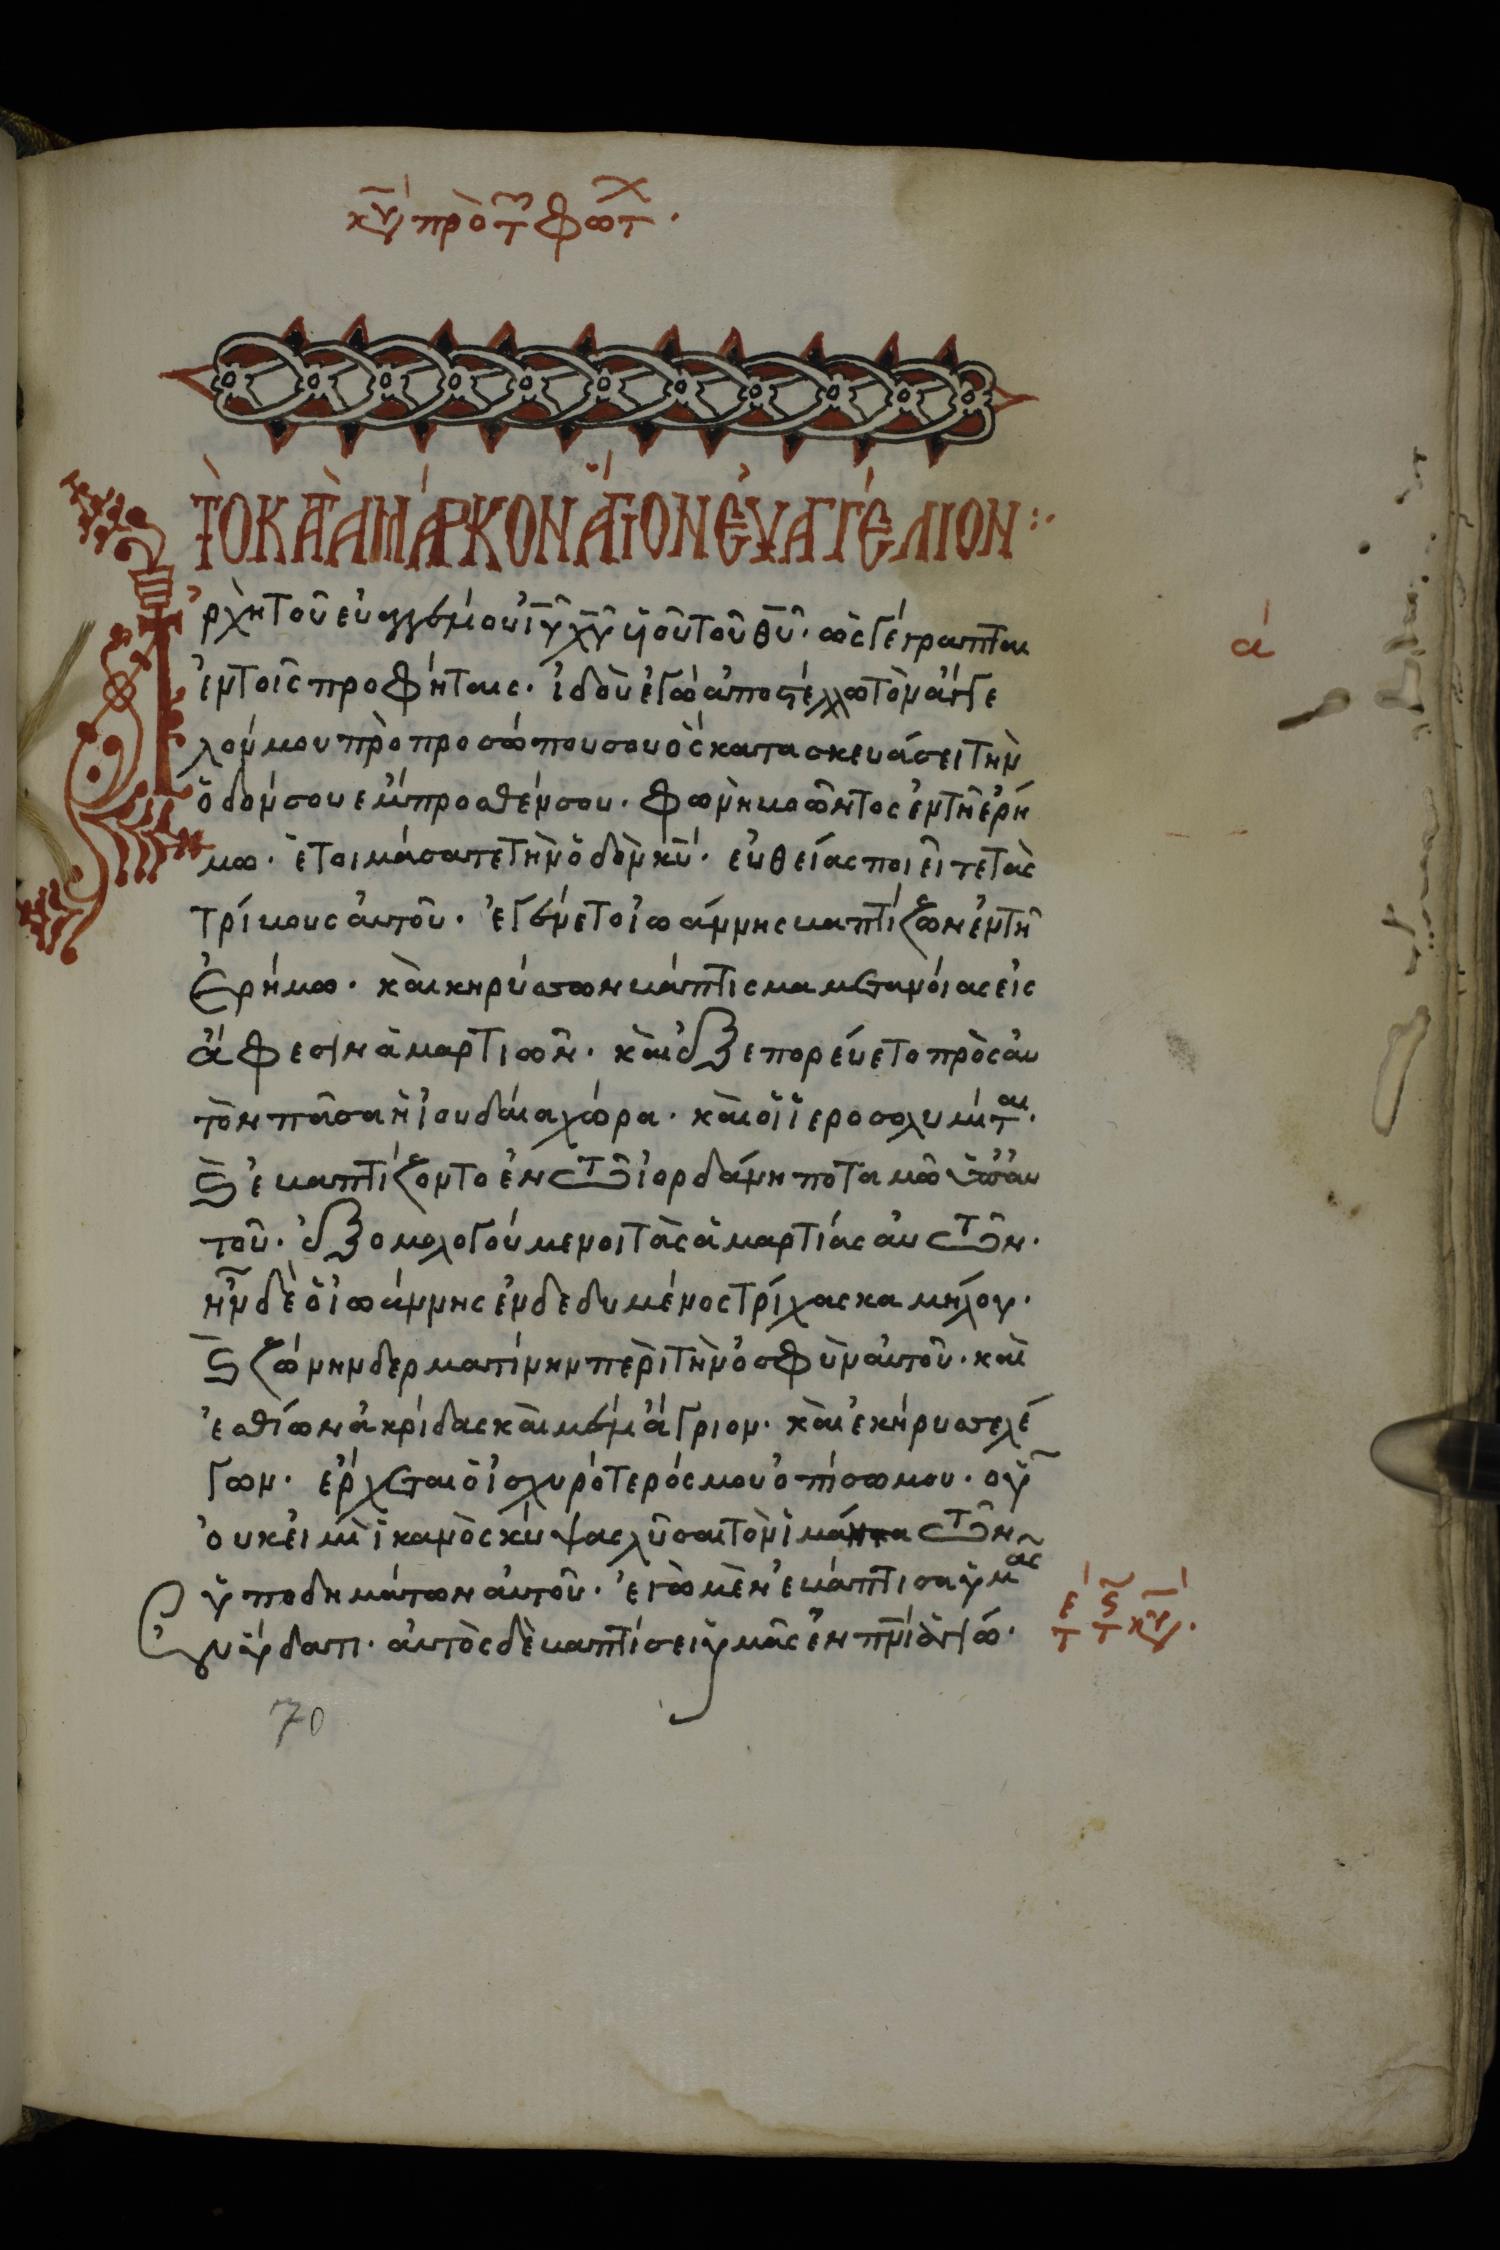 κυ πρὸ τ φωτ.
ΤΟ ΚΑΤΑ ΜΑΡΚΟΝ ΑΓΙΟΝ ΕΥΑΓΓΕΛΙΟΝ
Ἀρχὴ τοῦ εὐαγγελίου ἰῦ χῦ ὑιοῦ τοῦ θῦ· ὡς γέγραπται
ἐν τοῖς προφήταις· ἰδοὺ ἐγὼ ἀποστέλλω τὸν ἄγγε
λόν μου πρὸ προσώπου σου ὃς κατασκευάσει τὴν
ὁδόν σου ἔμπροσθέν σου· φωνὴ βοῶντος ἐν τῆ ἐρή
μω· ἑτοιμάσατε τὴν ὁδὸν κῦ· εὐθείας ποιεῖτε τὰς
τρίβους ἀυτοῦ· ἐγένετο ἰωάννης βαπτίζων ἐν τῆ
ἐρήμω· καὶ κηρύσσων βάπτισμα μετανοίας εἰς
ἄφεσιν ἁμαρτιῶν· καὶ ἐξεπορεύετο πρὸς ἀυ
τὸν πᾶσα ἡ ἰουδαία χώρα· καὶ οἱ ἱεροσολυμίται·
ϗ ἐβαπτίζοντο ἐν τῶ ἰορδάνη ποταμῶ ὑπ' ἀυ
τοῦ· ἐξομολογούμενοι τὰς ἁμαρτίας ἀυτῶν·
ἦν δὲ ὁ ἰωάννης ἐνδεδυμένος τρίχας καμήλου·
ϗ ζώνην δερματίνην περὶ τὴν ὀσφὺν ἀυτοῦ· καὶ
ἐσθίων ἀκρίδας καὶ μέλι ἄγριον· καὶ ἐκήρυσσε λέ
γων· ἔρχεται ὁ ἰσχυρότερός μου ὀπίσω μου· οὗ
ουκ εἰμὶ ἱκανὸς κύψας λῦσαι τὸν ἱμάντα τῶν
ὑποδημάτων ἀυτοῦ· ἐγὼ μὲν ἐβάπτισα ὑμᾶς
ἐν ὕδατι· ἀυτὸς δὲ βαπτίσει ὑμᾶς ἐν πνι ἁγίω·
ά
70